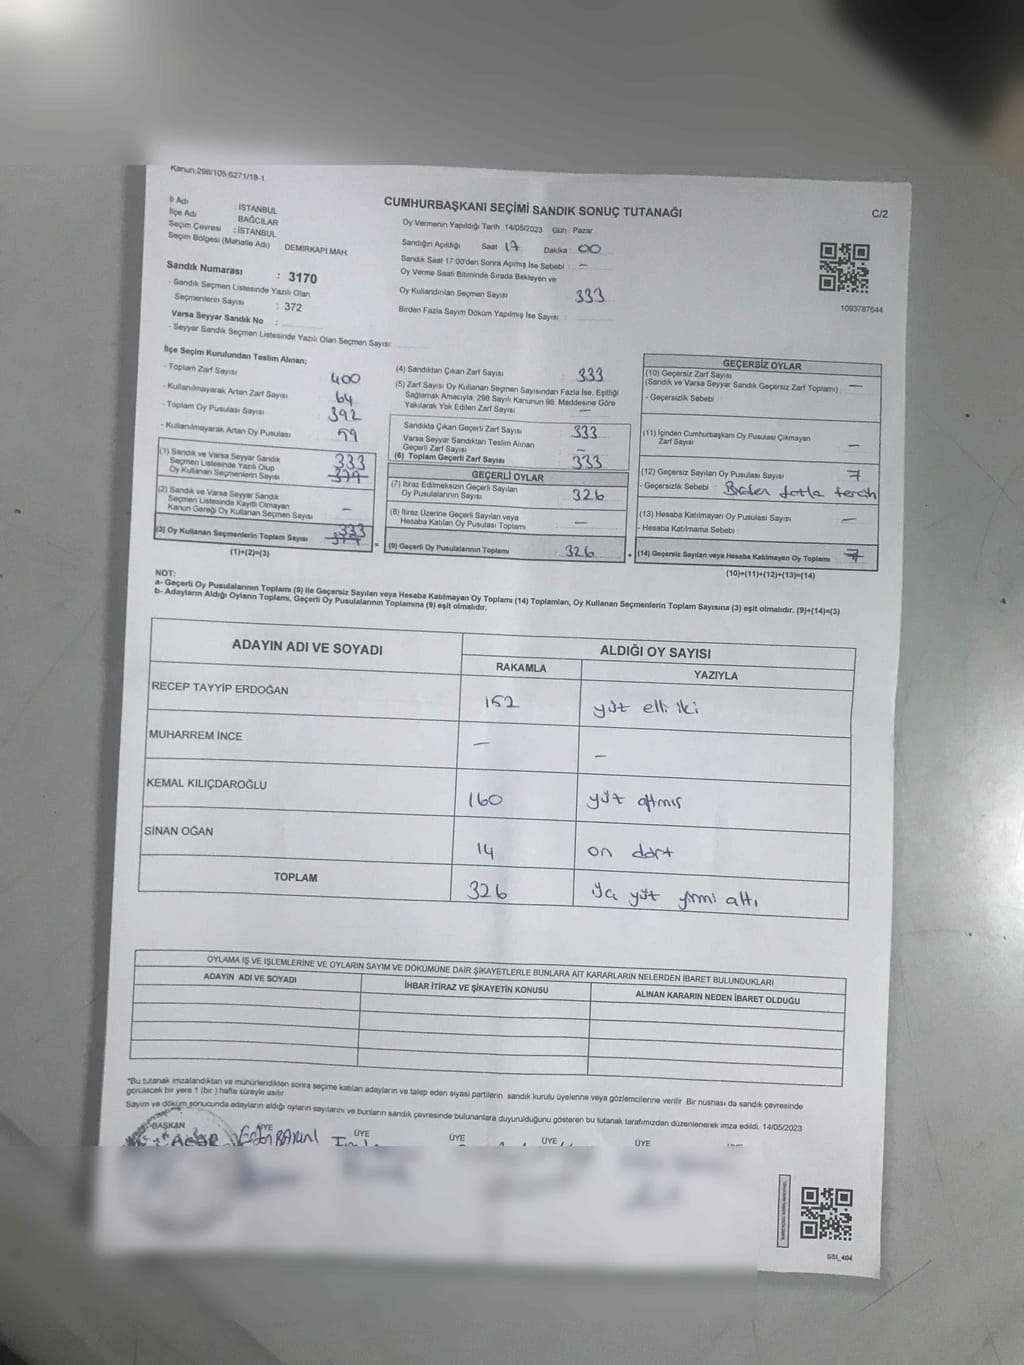 Kanun;298/105,6271/18-1
İl Adı : İSTANBUL
İlçe Adı BAĞCILAR
Seçim Çevresi : İSTANBUL
Seçim Bölgesi (Mahalle Adı) DEMİRKAPI MAH.
CUMHURBAŞKANI SEÇİMİ SANDIK SONUÇ TUTANAĞI
C/2
Oy Vermenin Yapıldığı Tarih :14/05/2023 Gün : Pazar
Sandığın Açıldığı Saat 17 Dakika : 00
Sandık Saat 17:00'den Sonra Açılmış İse Sebebi : –
Oy Verme Saati Bitiminde Sırada Bekleyen ve
Oy Kullandırılan Seçmen Sayısı 333
Birden Fazla Sayım Döküm Yapılmış İse Sayısı :
1093787644
Sandık Numarası : 3170
- Sandık Seçmen Listesinde Yazılı Olan
Seçmenlerin Sayısı : 372
Varsa Seyyar Sandık No :
- Seyyar Sandık Seçmen Listesinde Yazılı Olan Seçmen Sayısı:
İlçe Seçim Kurulundan Teslim Alınan;
- Toplam Zarf Sayısı 400
- Kullanılmayarak Artan Zarf Sayısı 64
- Toplam Oy Pusulası Sayısı 392
- Kullanılmayarak Artan Oy Pusulası 59
(1) Sandık ve Varsa Seyyar Sandık
Seçmen Listesinde Yazılı Olup
Oy Kullanan Seçmenlerin Sayısı 333
(2) Sandık ve Varsa Seyyar Sandık
Seçmen Listesinde Kayıtlı Olmayan
Kanun Gereği Oy Kullanan Seçmen Sayısı –
(3) Oy Kullanan Seçmenlerin Toplam Sayısı 333
(1)+(2)=(3)
(4) Sandıktan Çıkan Zarf Sayısı 333
(5) Zarf Sayısı Oy Kullanan Seçmen Sayısından Fazla İse, Eşitliği
Sağlamak Amacıyla, 298 Sayılı Kanunun 98. Maddesine Göre
Yakılarak Yok Edilen Zarf Sayısı –
Sandıkta Çıkan Geçerli Zarf Sayısı 333
Varsa Seyyar Sandıktan Teslim Alınan
Geçerli Zarf Sayısı –
(6) Toplam Geçerli Zarf Sayısı 333
GEÇERLİ OYLAR
(7) İtiraz Edilmeksizin Geçerli Sayılan
Oy Pusulalarının Sayısı 326
(8) İtiraz Üzerine Geçerli Sayılan veya
Hesaba Katılan Oy Pusulası Toplamı –
= (9) Geçerli Oy Pusulalarının Toplamı 326 +
GEÇERSİZ OYLAR
(10) Geçersiz Zarf Sayısı
(Sandık ve Varsa Seyyar Sandık Geçersiz Zarf Toplamı) –
- Geçersizlik Sebebi
(11) İçinden Cumhurbaşkanı Oy Pusulası Çıkmayan
Zarf Sayısı –
(12) Geçersiz Sayılan Oy Pusulası Sayısı 7
- Geçersizlik Sebebi : Birden fazla tercih
(13) Hesaba Katılmayan Oy Pusulası Sayısı –
- Hesaba Katılmama Sebebi
(14) Geçersiz Sayılan veya Hesaba Katılmayan Oy Toplamı 7
(10)+(11)+(12)+(13)=(14)
NOT:
a- Geçerli Oy Pusulalarının Toplamı (9) ile Geçersiz Sayılan veya Hesaba Katılmayan Oy Toplamı (14) Toplamları, Oy Kullanan Seçmenlerin Toplam Sayısına (3) eşit olmalıdır. (9)+(14)=(3)
b- Adayların Aldığı Oyların Toplamı, Geçerli Oy Pusulalarının Toplamına (9) eşit olmalıdır.
ADAYIN ADI VE SOYADI
ALDIĞI OY SAYISI
RAKAMLA YAZIYLA
RECEP TAYYİP ERDOĞAN 152 yüz elli iki
MUHARREM İNCE – –
KEMAL KILIÇDAROĞLU 160 yüz altmış
SİNAN OĞAN 14 on dört
TOPLAM 326 üç yüz yirmi altı
OYLAMA İŞ VE İŞLEMLERİNE VE OYLARIN SAYIM VE DÖKÜMÜNE DAİR ŞİKAYETLERLE BUNLARA AİT KARARLARIN NELERDEN İBARET BULUNDUKLARI
ADAYIN ADI VE SOYADI İHBAR İTİRAZ VE ŞİKAYETİN KONUSU ALINAN KARARIN NEDEN İBARET OLDUĞU
*Bu tutanak imzalandıktan ve mühürlendikten sonra seçime katılan adayların ve talep eden siyasi partilerin sandık kurulu üyelerine veya gözlemcilerine verilir. Bir nüshası da sandık çevresinde
görülecek bir yere 1 (bir) hafta süreyle asılır
Sayım ve döküm sonucunda adayların aldığı oyların sayılarını ve bunların sandık çevresinde bulunanlara duyurulduğunu gösteren bu tutanak tarafımızdan düzenlenerek imza edildi. 14/05/2023
BAŞKAN ÜYE ÜYE ÜYE ÜYE ÜYE
SSI_404